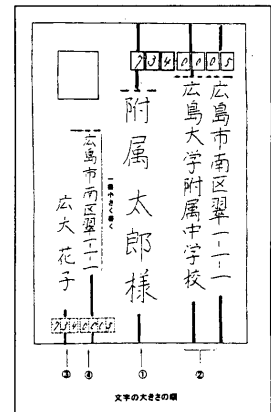 734-0005
広島市南区翠一-一-一
広島大学附属中学校
附属太郎様
一番小さく書く
広島市南区翠一-一-一
広大花子
7340005
③ ④ ① ②
文字の大きさの順